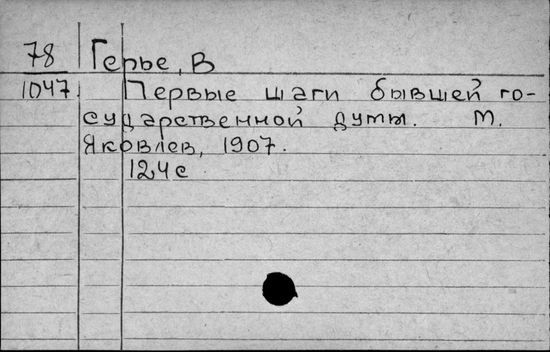 78 Герье, В
1047 Первые шаги бывшей го-
сударственной думы. М.
Яковлев, 1907.
124 с